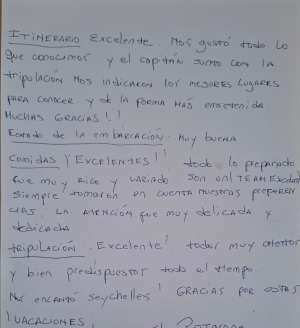 ITINERARIO Excelente. Nos gustó todo lo
que conocimos y el capitán junto con la
tripulación nos indicaron los mejores lugares
para conocer y de la forma más entretenida
Muchas GRACIAS!!
Estado de la embarcación: Muy buena
Comidas ¡EXCELENTES!! todo lo preparado
fue muy rico y variado. Son un TEAM
Siempre tomaron en cuenta nuestras
LA Atención fue muy delicada y
dedicada
tripulación. Excelente! todos muy atentos
y bien predispuestos todo el tiempo.
Nos encantó Seychelles! GRACIAS por estas
VACACIONES!